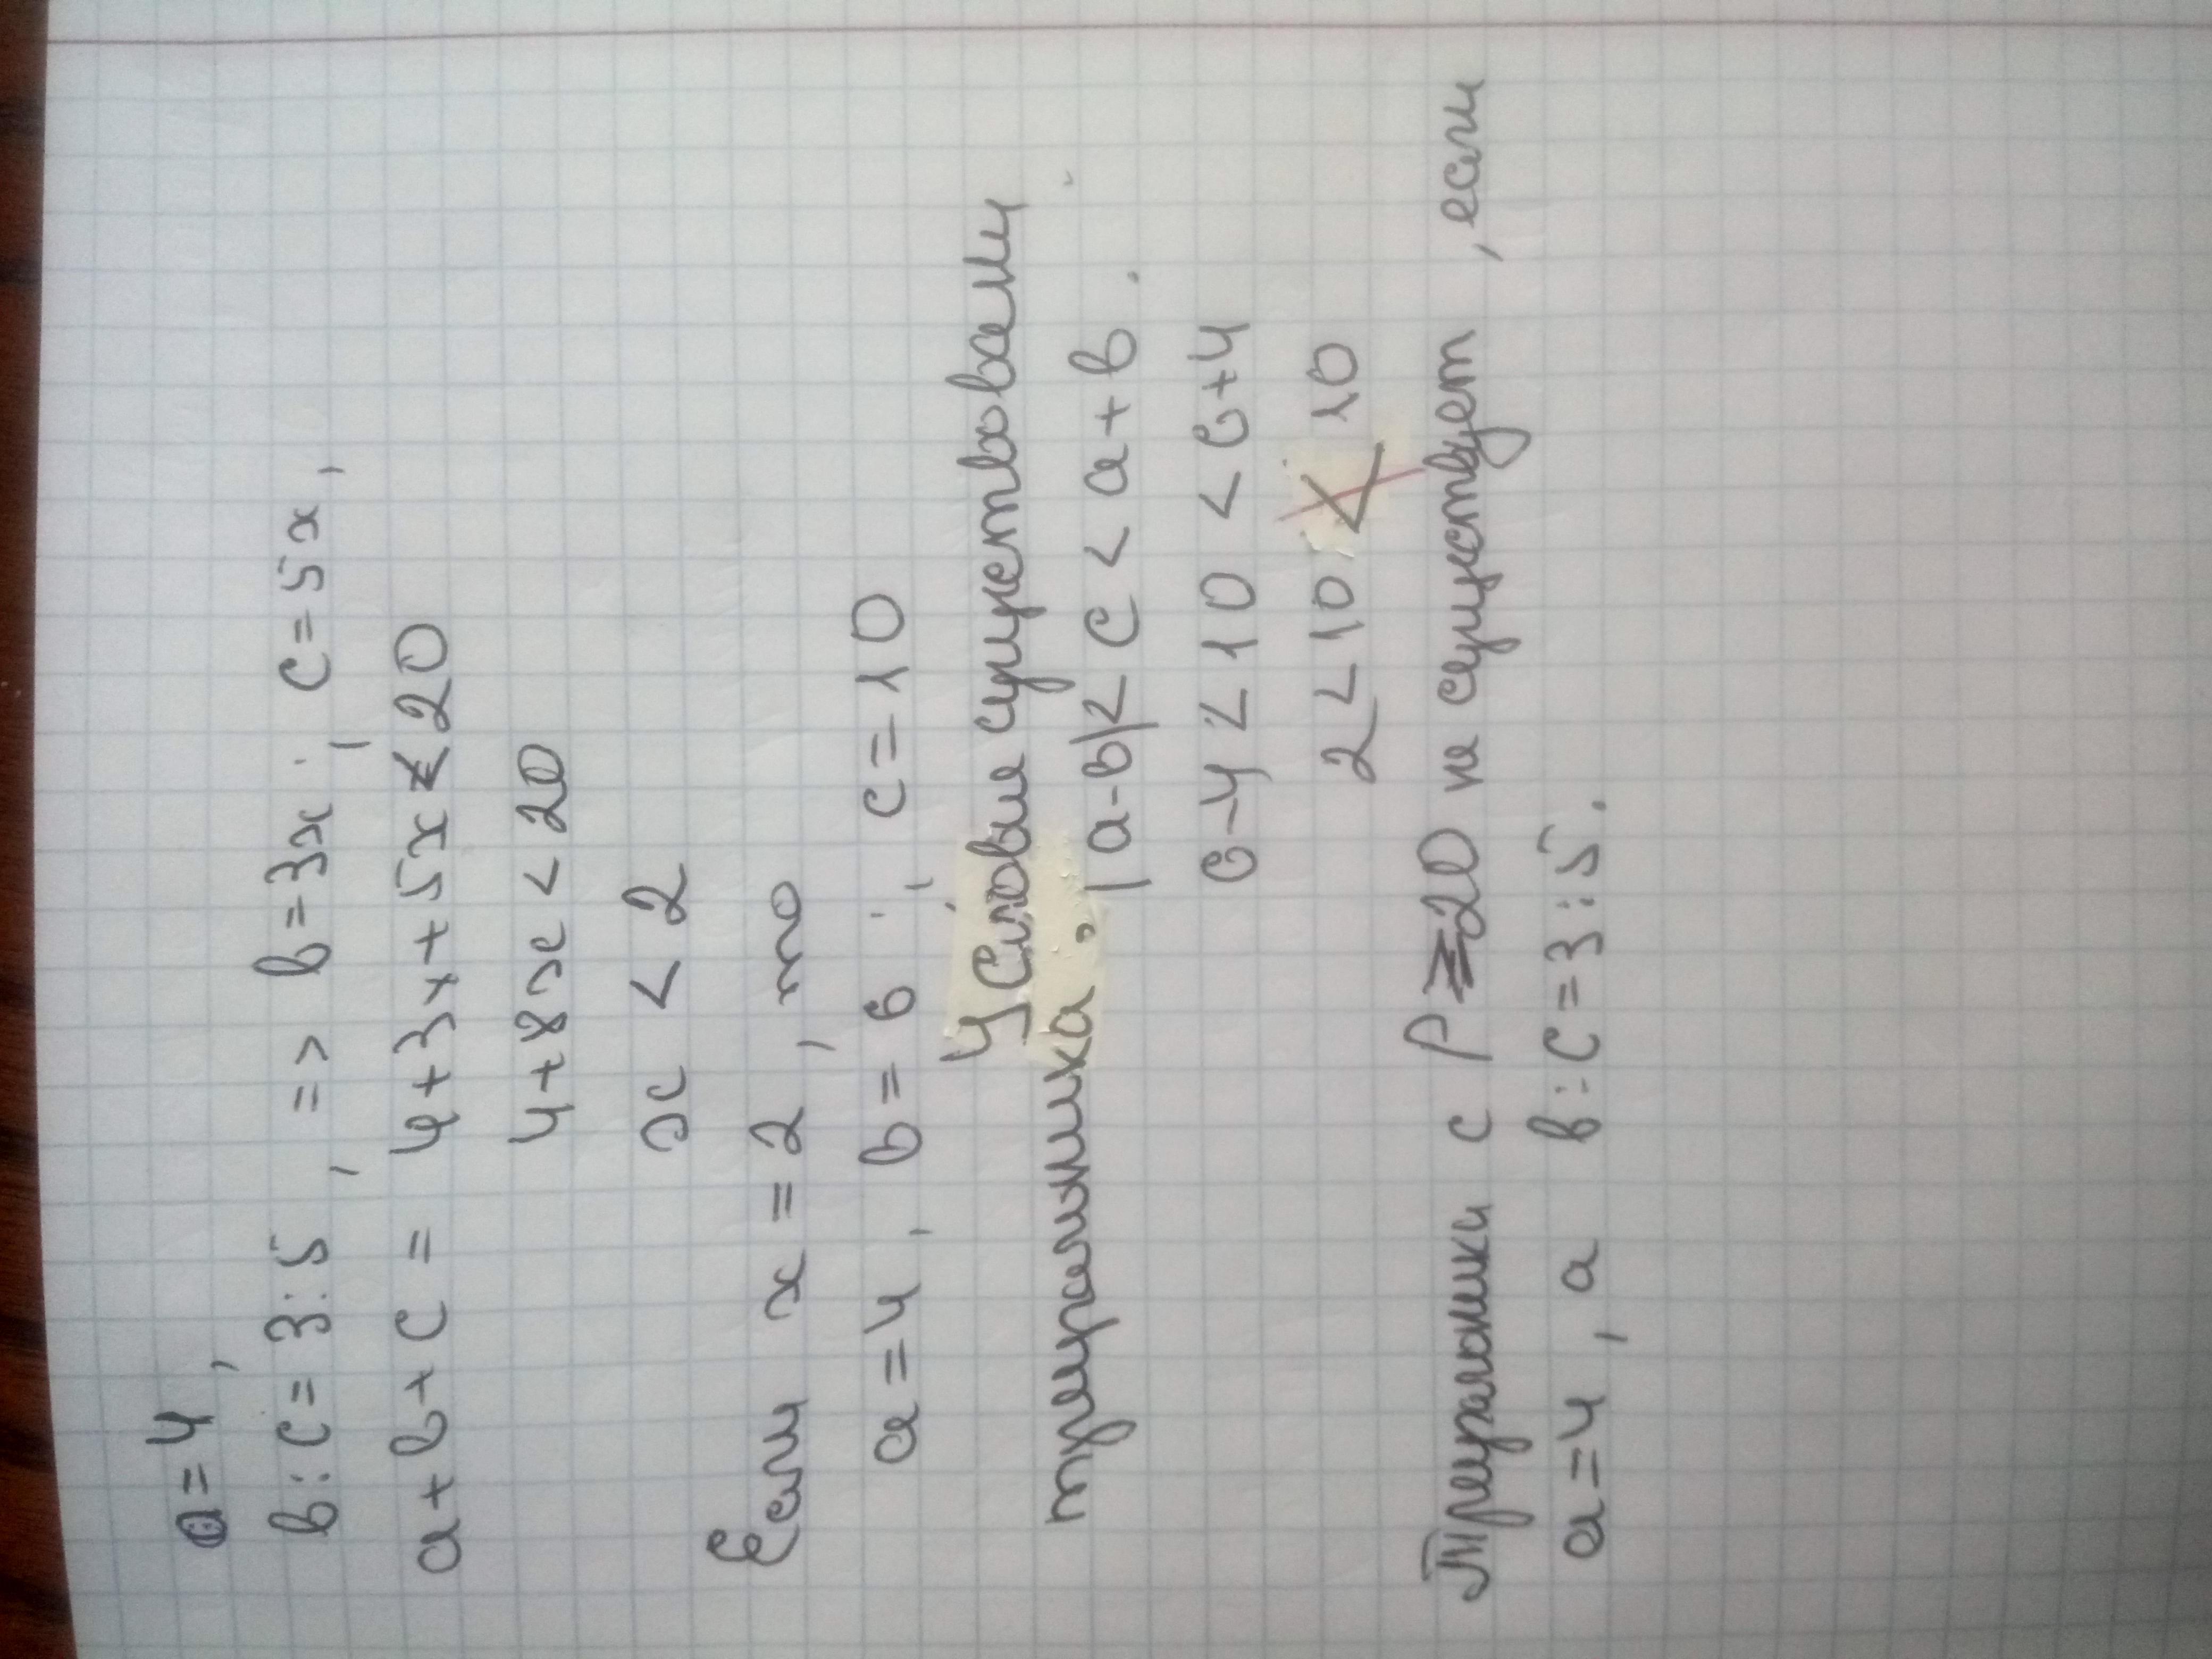 a=4,
в:с=3:5, => в=3x; c=5x,
a+в+c= 4+3x+5x<20
4+8x<20
x<2
Если x=2, то
a=4, в=6; c=10
Условие существовании
треугольника: |a-в|<c<a+в.
6-4<10<6+4
2<10≮10
Треугольники с P≥20 не существует, если
a=4, а в:с=3:5.